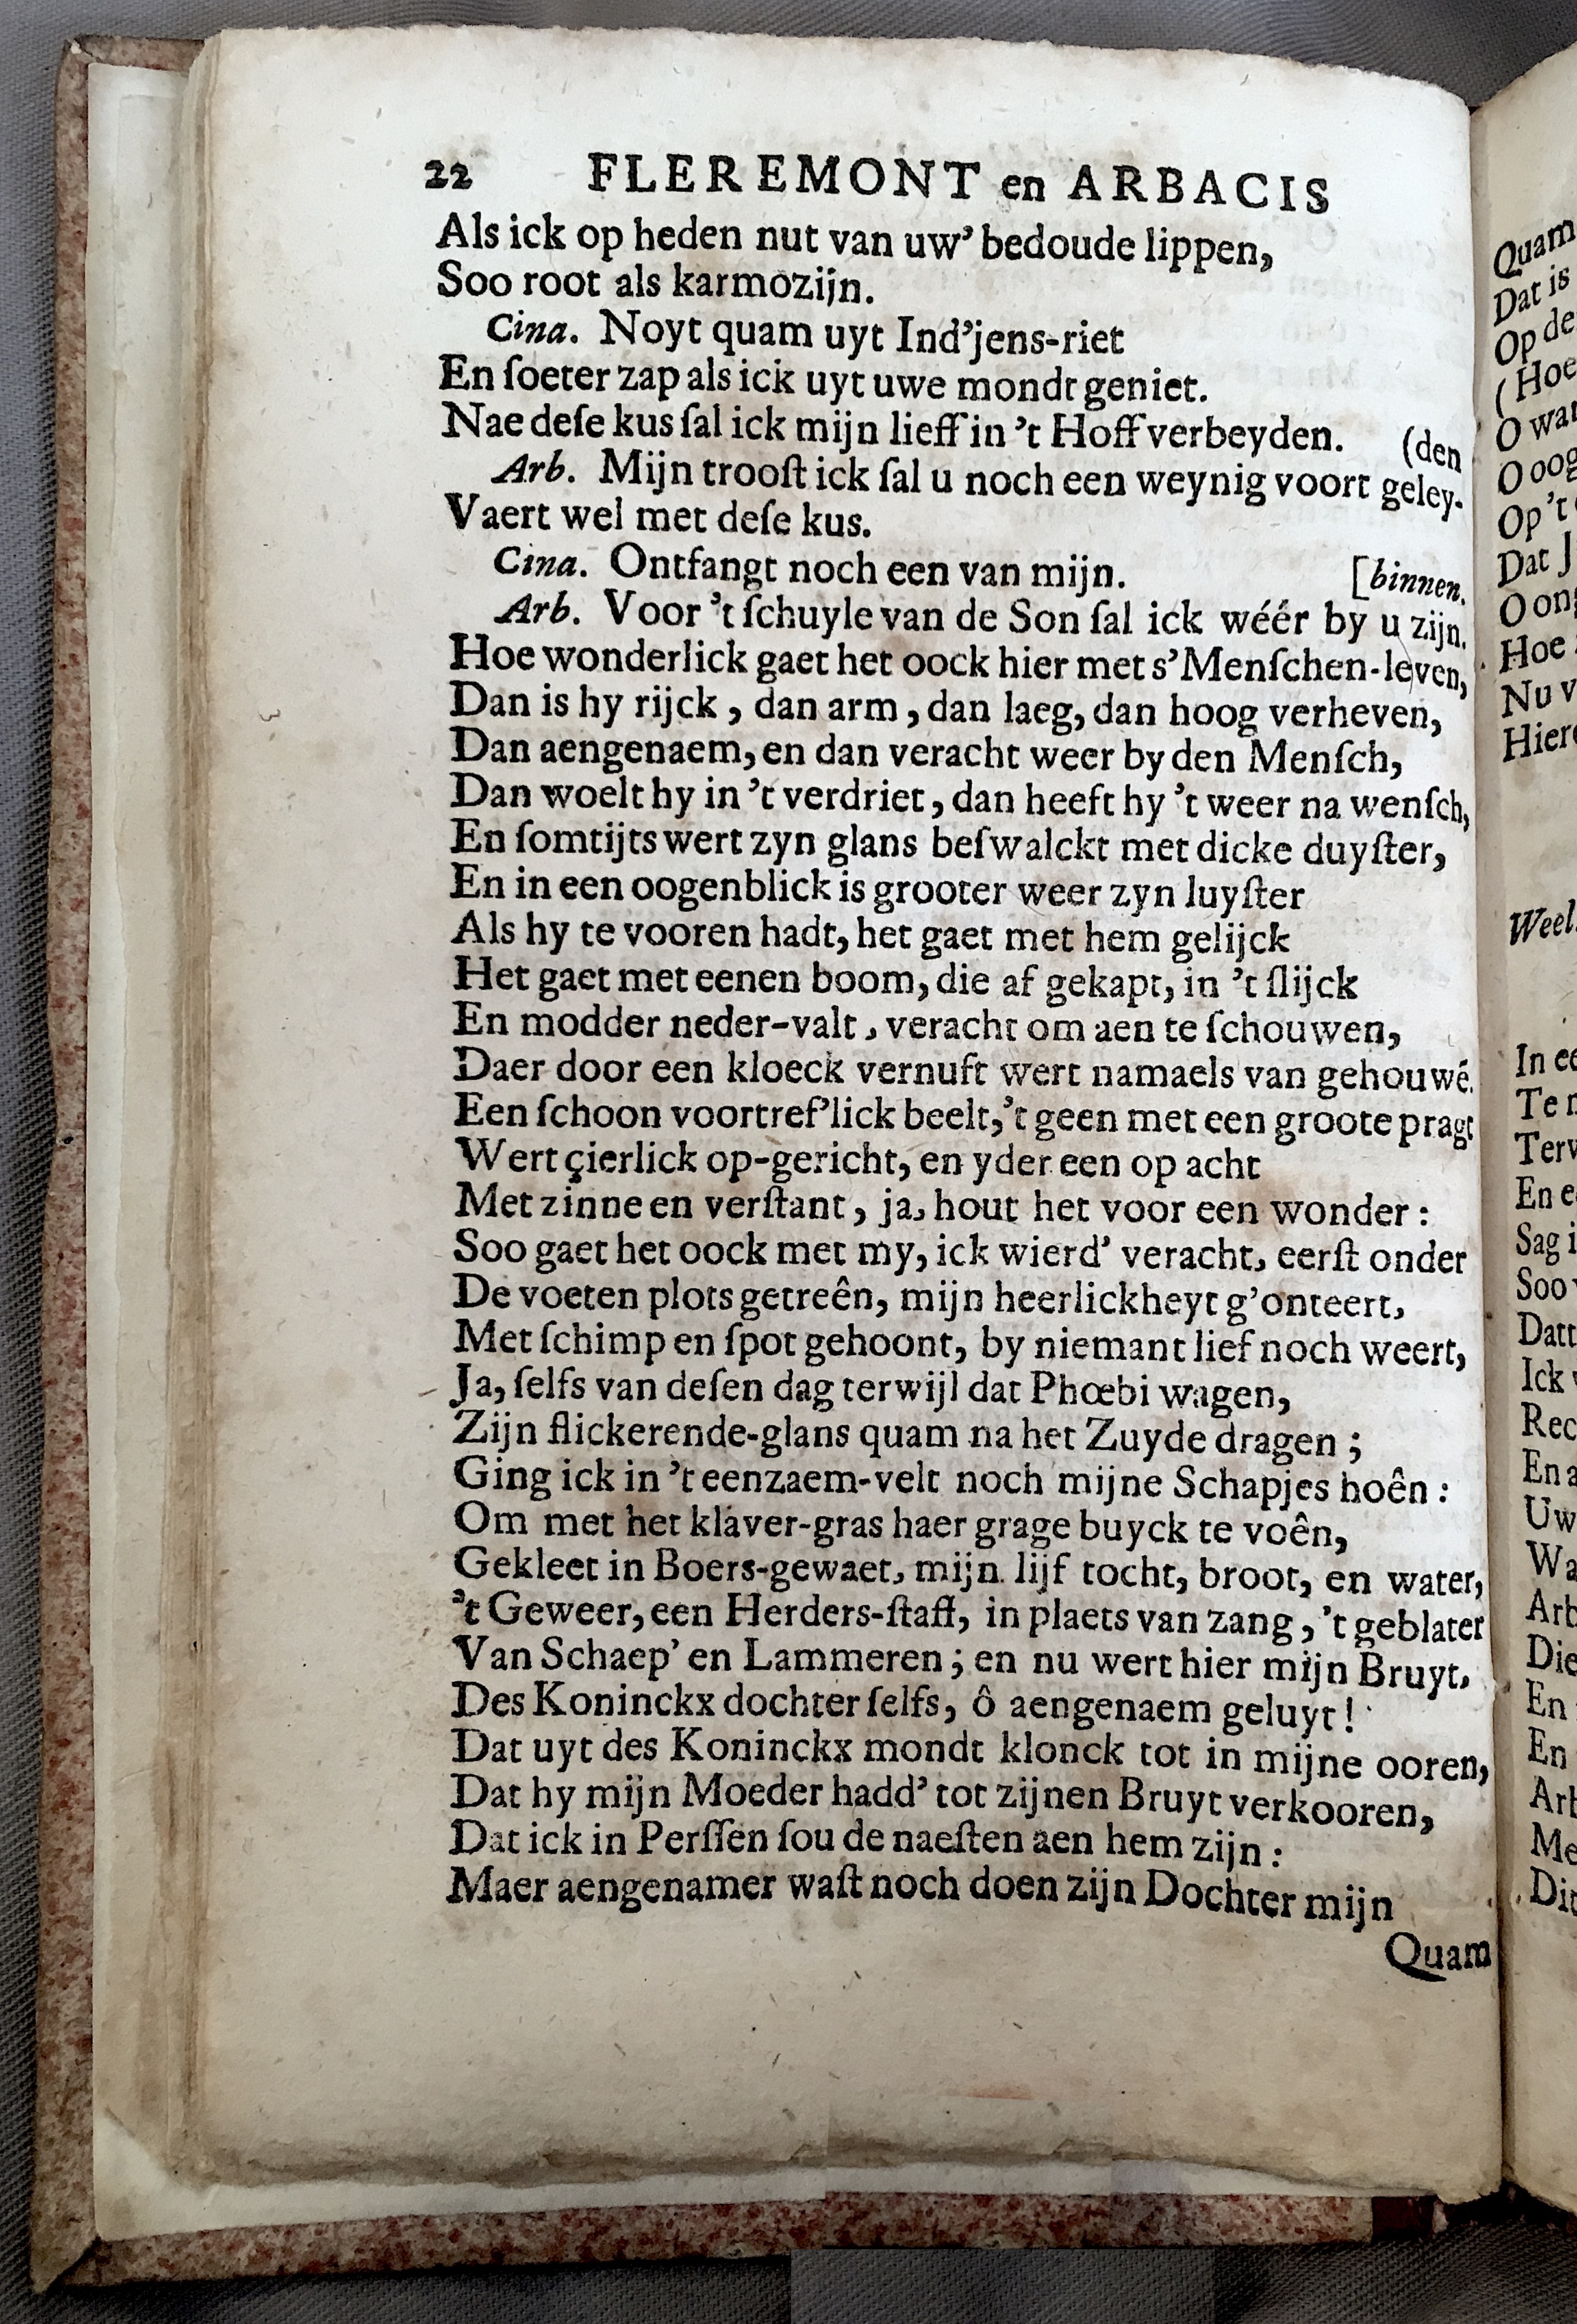 22 FLEREMONT en ARBACIS
Als ick op heden nut van uw’ bedoude lippen,
Soo root als karmozijn.
Cina. Noyt quam uyt Ind’jens-riet
En ſoeter zap als ick uyt uwe mondt geniet.
Nae deſe kus ſal ick mijn lieff in ’t Hoff verbeyden. (den
Arb. Mijn trooſt ick ſal u noch een weynig voort geley-
Vaert wel met deſe kus.
Cina. Ontfangt noch een van mijn. [binnen.
Arb. Voor ’t ſchuyle van de Son ſal ick wéér by u zijn.
Hoe wonderlick gaet het oock hier met s’Menſchen-leven,
Dan is hy rijck, dan arm, dan laeg, dan hoog verheven,
Dan aengenaem, en dan veracht weer by den Menſch,
Dan woelt hy in ’t verdriet, dan heeft hy ’t weer na wenſch,
En ſomtijts wert zyn glans beſwalckt met dicke duyſter,
En in een oogenblick is grooter weer zyn luyſter
Als hy te vooren hadt, het gaet met hem gelijck
Het gaet met eenen boom, die af gekapt, in ’t ſlijck
En modder neder-valt, veracht om aen te ſchouwen,
Daer door een kloeck vernuft wert namaels van gehouwē.
Een ſchoon voortref’lick beelt, ’t geen met een groote pragt
Wert çierlick op-gericht, en yder een op acht
Met zinne en verſtant, ja, hout het voor een wonder:
Soo gaet het oock met my, ick wierd’ veracht, eerſt onder
De voeten plots getreên, mijn heerlickheyt g’onteert,
Met ſchimp en ſpot gehoont, by niemant lief noch weert,
Ja, ſelfs van deſen dag terwijl dat Phœbi wagen,
Zijn flickerende-glans quam na het Zuyde dragen;
Ging ick in ’t eenzaem-velt noch mijne Schapjes hoên:
Om met het klaver-gras haer grage buyck te voên,
Gekleet in Boers-gewaet, mijn lijf tocht, broot, en water,
’t Geweer, een Herders-ſtaff, in plaets van zang, ’t geblater
Van Schaep’ en Lammeren; en nu wert hier mijn Bruyt,
Des Koninckx dochter ſelfs, ô aengenaem geluyt!
Dat uyt des Koninckx mondt klonck tot in mijne ooren,
Dat hy mijn Moeder hadd’ tot zijnen Bruyt verkooren,
Dat ick in Perſſen ſou de naeſten aen hem zijn:
Maer aengenamer waſt noch doen zijn Dochter mijn
Quam
Quam
Dat is
Op de
(Hoe
O
O
Op ’t
Dat
O
Hoe
Nu
In
Te
En
Sag
Soo
Datt
Ick
En
Uw
Die
En
En